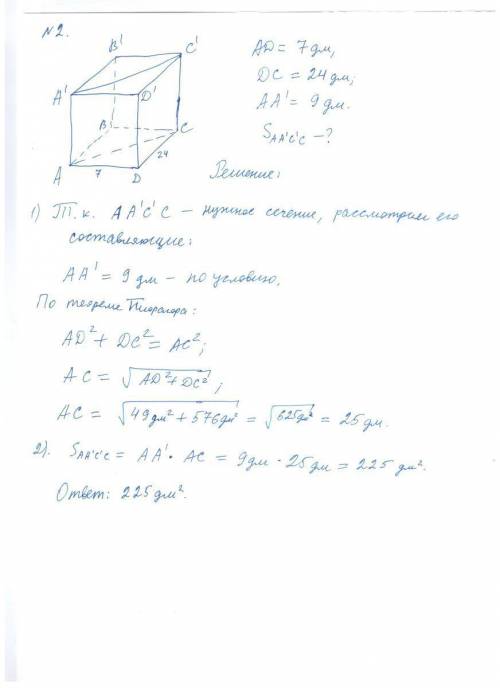 №2.
B'
C'
A'
D'
B
C
A
D
7
24
AD = 7 дм,
DC = 24 дм;
AA' = 9 дм.
S AA'C'C – ?
Решение:
1) Т.к. AA'C'C – нужное сечение, рассмотрим его
составляющие:
AA' = 9 дм – по условию.
По теореме Пифагора:
AD² + DC² = AC²;
AC = √AD²+DC²;
AC = √49дм² + 576дм² = √625дм² = 25 дм.
2). S AA'C'C = AA' · AC = 9дм · 25дм = 225 дм².
Ответ: 225 дм².